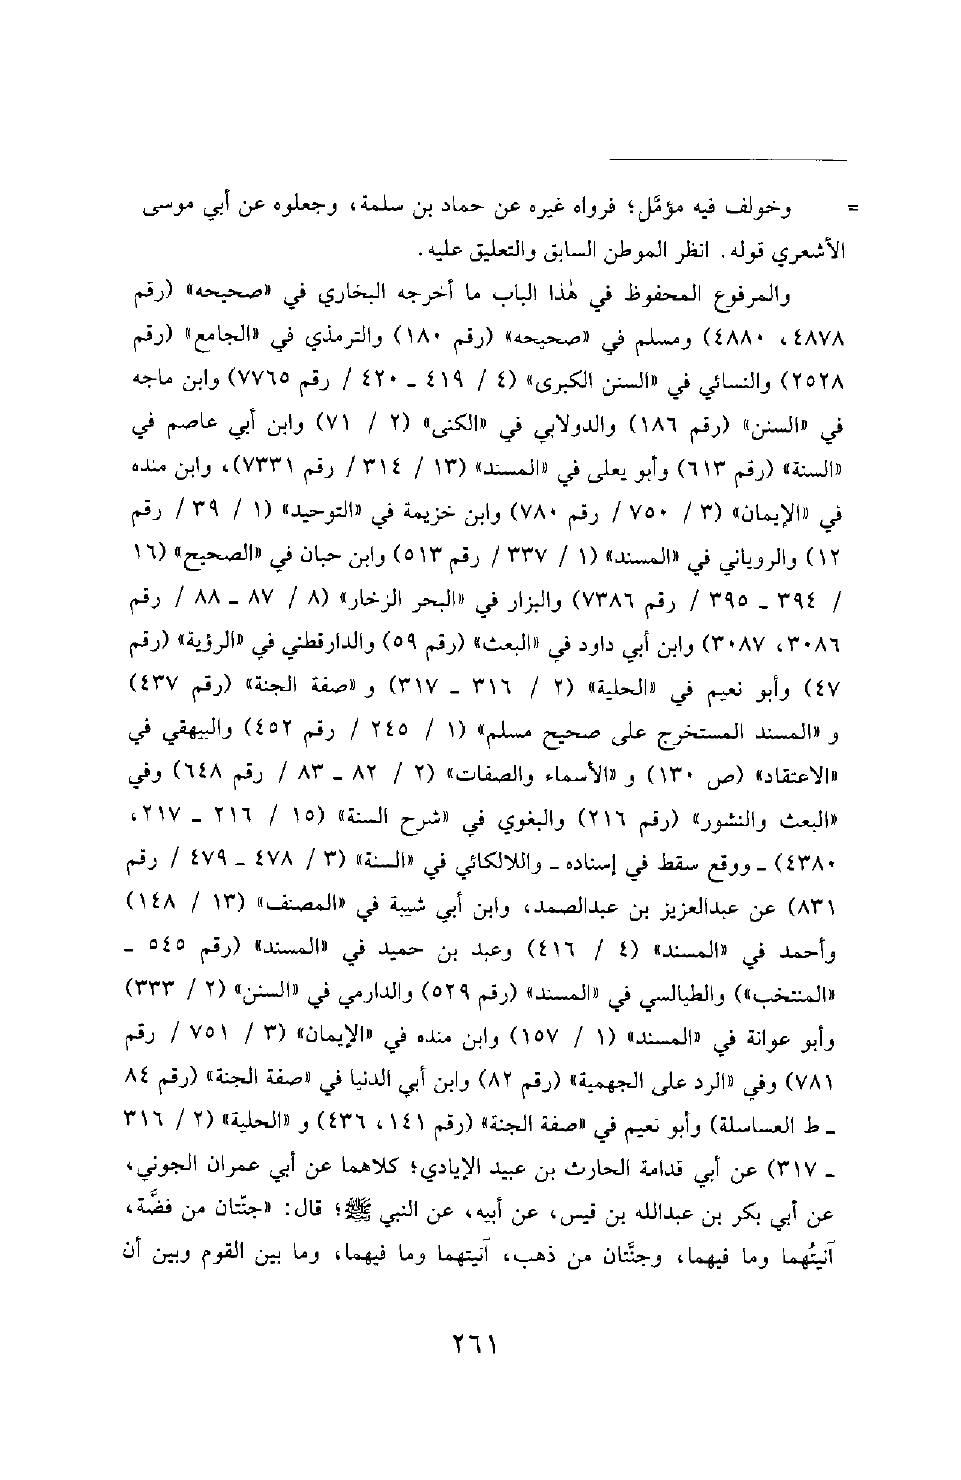 = وخولف فيه مؤمَّل؛ فرواه غيره عن حماد بن سلمة، وجعلوه عن أبي موسى
الأشعري قوله. انظر الموطن السابق والتعليق عليه.
والمرفوع المحفوظ في هٰذا الباب ما أخرجه البخاري في «صحيحه» (رقم
٤٨٧٨، ٤٨٨٠) ومسلم في «صحيحه» (رقم ١٨٠) والترمذي في «الجامع» (رقم
٢٥٢٨) والنسائي في «السنن الكبرى» (٤ / ٤١٩ ـ ٤٢٠ / رقم ٧٧٦٥) وابن ماجه
في «السنن» (رقم ١٨٦) والدولابي في «الكنى» (٢ / ٧١) وابن أبي عاصم في
«السنة» (رقم ٦١٣) وأبو يعلى في «المسند» (١٣ / ٣١٤ / رقم ٧٣٣١)، وابن منده
في «الإيمان» (٣ / ٧٥٠ / رقم ٧٨٠) وابن خزيمة في «التوحيد» (١ / ٣٩ / رقم
١٢) والروياني في «المسند» (١ / ٣٣٧ / رقم ٥١٣) وابن حبان في «الصحيح» (١٦
/ ٣٩٤ ـ ٣٩٥ / رقم ٧٣٨٦) والبزار في «البحر الزخار» (٨ / ٨٧ ـ ٨٨ / رقم
٣٠٨٦، ٣٠٨٧) وابن أبي داود في «البعث» (رقم ٥٩) والدارقطني في «الرؤية» (رقم
٤٧) وأبو نعيم في «الحلية» (٢ / ٣١٦ ـ ٣١٧) و «صفة الجنة» (رقم ٤٣٧)
و «المسند المستخرج على صحيح مسلم» (١ / ٢٤٥ / رقم ٤٥٢) والبيهقي في
«الاعتقاد» (ص ١٣٠) و «الأسماء والصفات» (٢ / ٨٢ ـ ٨٣ / رقم ٦٤٨) وفي
«البعث والنشور» (رقم ٢١٦) والبغوي في «شرح السنة» (١٥ / ٢١٦ ـ ٢١٧،
٤٣٨٠) ـ ووقع سقط في إسناده ـ واللالكائي في «السنة» (٣ / ٤٧٨ ـ ٤٧٩ / رقم
٨٣١) عن عبدالعزيز بن عبدالصمد، وابن أبي شيبة في «المصنف» (١٣ / ١٤٨)
وأحمد في «المسند» (٤ / ٤١٦) وعبد بن حميد في «المسند» (رقم ٥٤٥ ـ
«المنتخب») والطيالسي في «المسند» (رقم ٥٢٩) والدارمي في «السنن» (٢ / ٣٣٣)
وأبو عوانة في «المسند» (١ / ١٥٧) وابن منده في «الإيمان» (٣ / ٧٥١ / رقم
٧٨١) وفي «الرد على الجهمية» (رقم ٨٢) وابن أبي الدنيا في «صفة الجنة» (رقم ٨٤
ـ ط العساسلة) وأبو نعيم في «صفة الجنة» (رقم ١٤١، ٤٣٦) و «الحلية» (٢ / ٣١٦
ـ ٣١٧) عن أبي قدامة الحارث بن عبيد الإيادي؛ كلاهما عن أبي عمران الجوني،
عن أبي بكر بن عبدالله بن قيس، عن أبيه، عن النبي ﷺ؛ قال: «جنّتان من فضَّة،
آنيتُهما وما فيهما، وجنَّتان من ذهب، آنيتهما وما فيهما، وما بين القوم وبين أن
٢٦١